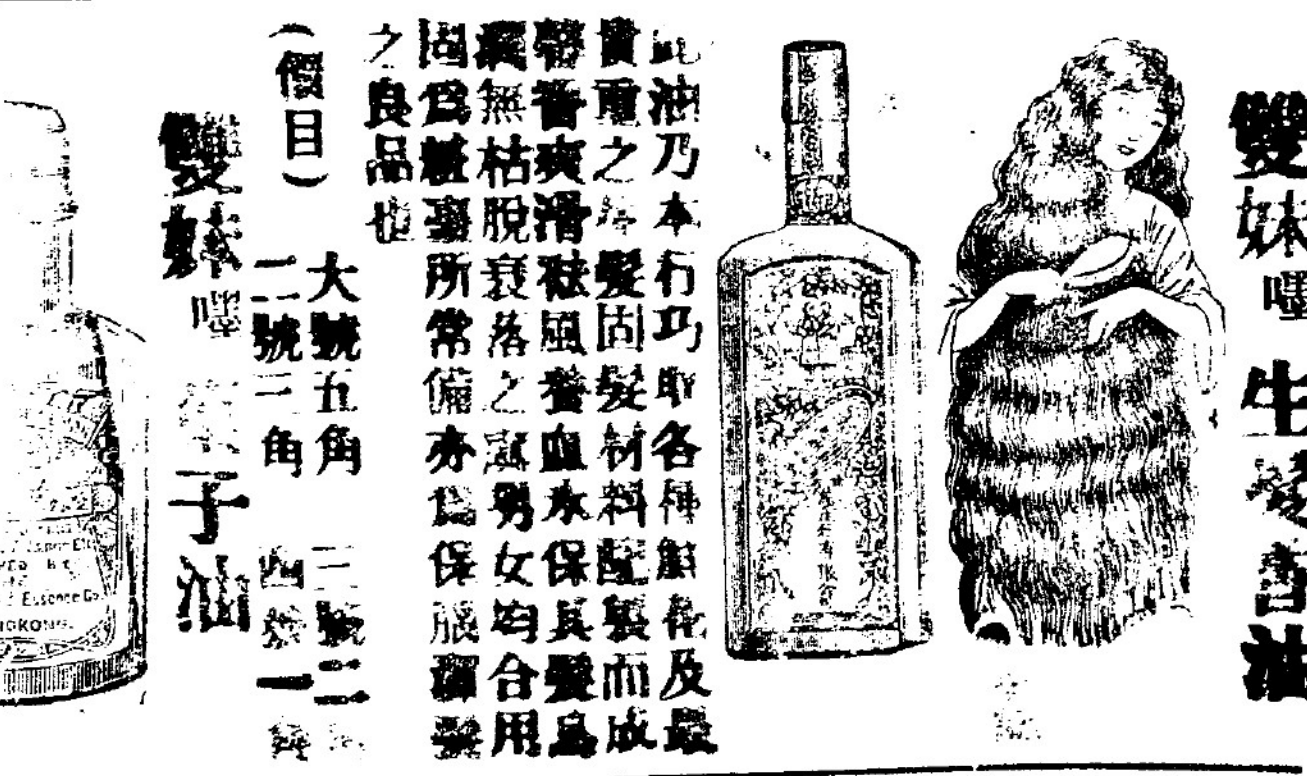 雙妹嚜生髮香油
此油乃本行巧取各種鮮花及最
貴重之髮固髮材料配製而成
馨香爽滑祛風養血永保其髮烏
潤無枯脫衰落之虞男女均合用
固為粧臺所常備亦為保髮
之良品也
(價目)
大號五角 三號二
二號三角 四號一
雙妹嚜子油
Essence Co.